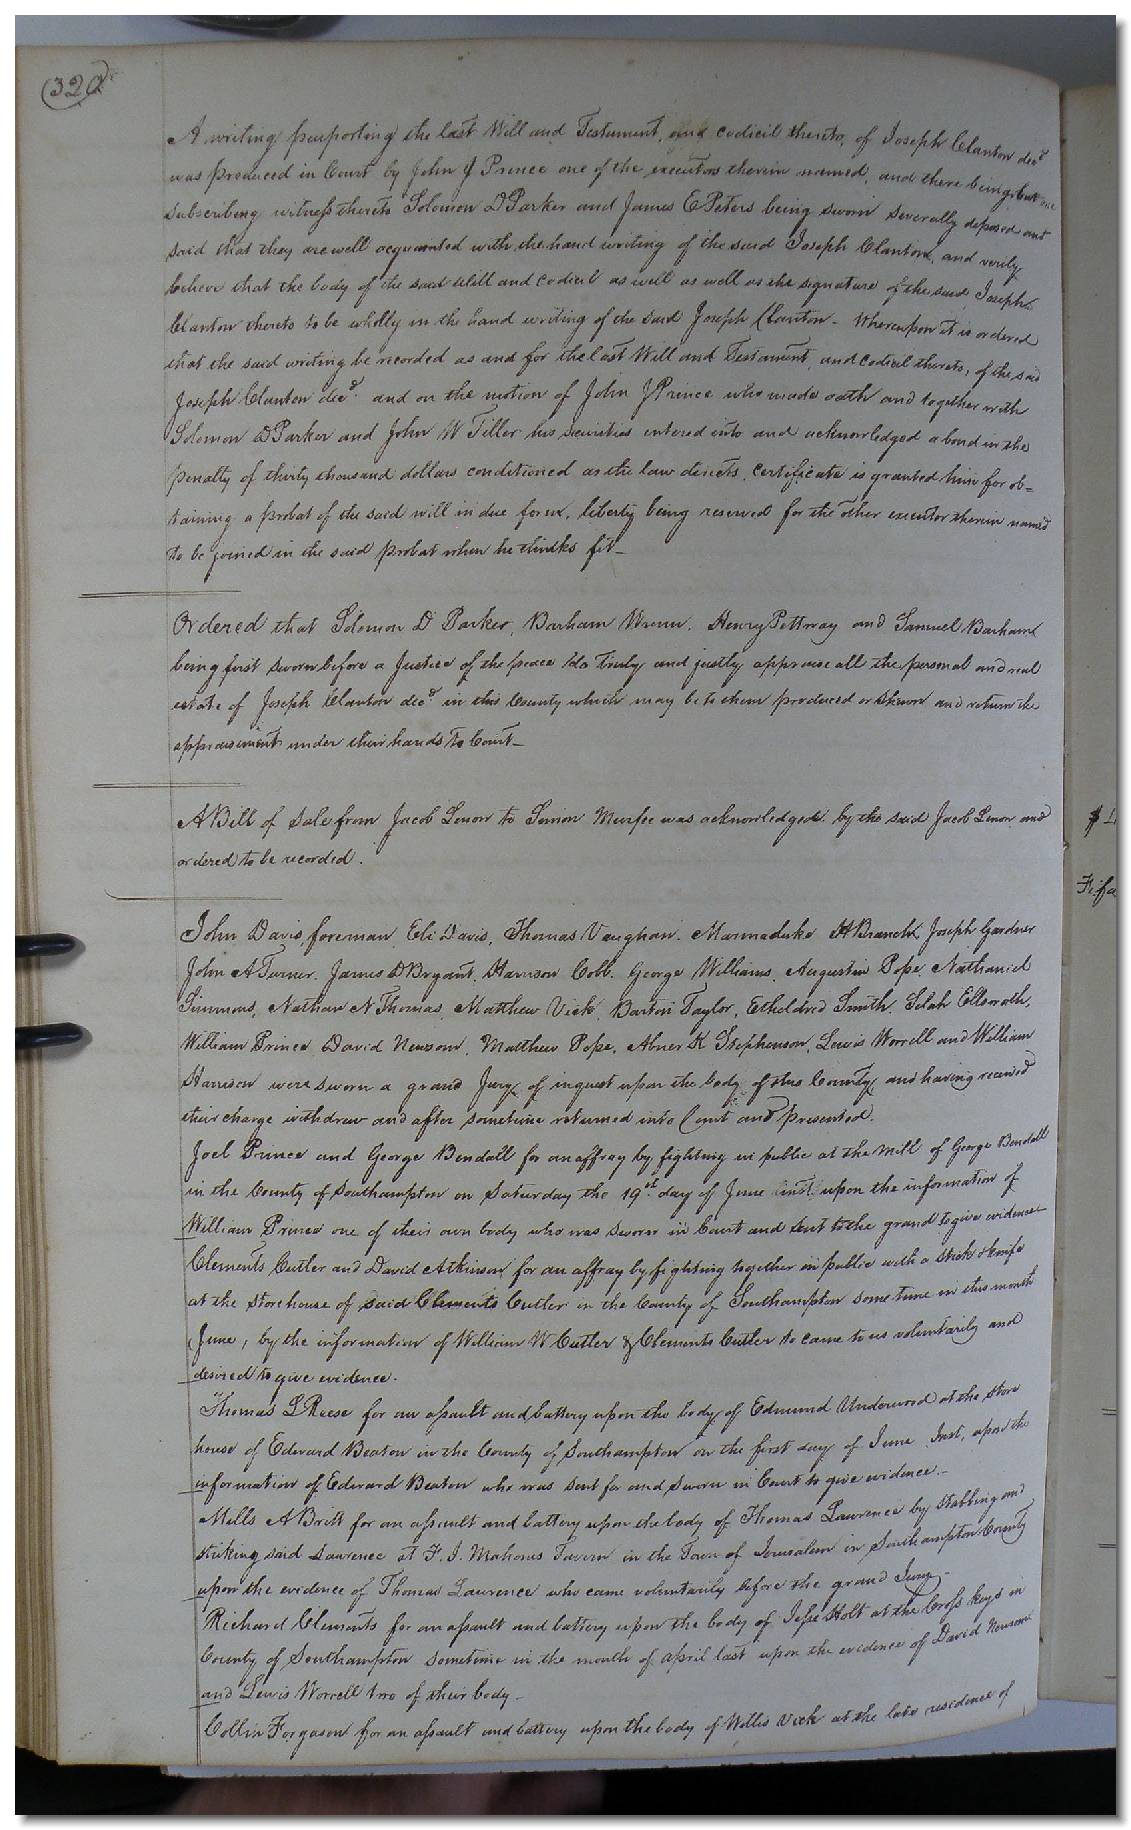 320
A writing purporting the last Will and Testament, and codicil thereto, of Joseph Clanton decd
was produced in Court by John J Prince one of the executors therein named, and there being but one
subscribing witness thereto Solomon D Parker and James E Peters being sworn severally deposed and
said that they are well acquainted with the hand writing of the said Joseph Clanton, and verily
believe that the body of the said Will and codicil as well as well as the signature of the said Joseph
Clanton thereto to be wholly in the hand writing of the said Joseph Clanton – Whereupon it is ordered
that the said writing be recorded as and for the last Will and Testament, and codicil thereto, of the said
Joseph Clanton decd. and on the motion of John J Prince who made oath and together with
Solomon D Parker and John W Tiller his securities entered into and acknowledged a bond in the
penalty of thirty thousand dollars conditioned as the law directs, certificate is granted him for ob=
taining a probat of the said will in due form, liberty being reserved for the other executor therein named
to be joined in the said probat when he thinks fit –
Ordered that Solomon D Parker, Barham Wrenn, Henry Pettway and Samuel Barham
being first sworn before a Justice of the peace do truly and justly appraise all the personal and real
estate of Joseph Clanton decd in this County which may be to them produced or shewn and return the
appraisement under their hands to Court –
A Bill of Sale from Jacob Lenow to Simon Murfee was acknowledged by the said Jacob Lenow and
ordered to be recorded.
John Davis, foreman, Eli Davis, Thomas Vaughan, Marmaduke H Branch, Joseph Gardner
John A Turner, James D Bryant, Harrison Cobb, George Williams, Augustin Pope, Nathaniel
Simmons, Nathan N Thomas, Matthew Vick, Barton Taylor, Etheldred Smith, Selah Ellsworth,
William Prince, David Newsom, Matthew Pope, Abner K Stephenson, Lewis Worrell and William
Harrison were sworn a grand Jury of inquest upon the body of this County, and having received
their charge withdrew and after sometime returned into Court and presented.
Joel Prince and George Bendall for an affray by fighting in public at the mill of George Bendall
in the County of Southampton on Saturday the 19st. day of June inst. upon the information of
William Prince one of their own body who was sworn in Court and sent to the grand to give evidence
Clements Cutler and David Atkinson for an affray by fighting together in public with a stick & knife
at the storehouse of said Clements Cutler in the County of Southampton some time in this month
June, by the information of William W Cutler & Clements Cutler to came to us voluntarily and
desired to give evidence.
Thomas L Reese for an assault and battery upon the body of Edmund Underwood at the store
house of Edward Beaton in the County of Southampton on the first day of June Inst, upon the
information of Edward Beaton who was sent for and sworn in Court to give evidence –
Mills A Britt for an assault and battery upon the body of Thomas Lawrence by stabbing and
striking said Lawrence at F. J. Mahones Tavern in the Town of Jerusalem in Southampton County
upon the evidence of Thomas Lawrence who came voluntarily before the grand Jury –
Richard Clements for an assault and battery upon the body of Jesse Holt at the Cross keys in
County of Southampton sometime in the month of april last upon the evidence of David Newsom
and Lewis Worrell two of their body –
Collin Forgason for an assault and battery upon the body of Willis Vick at the late residence of
Fi fa